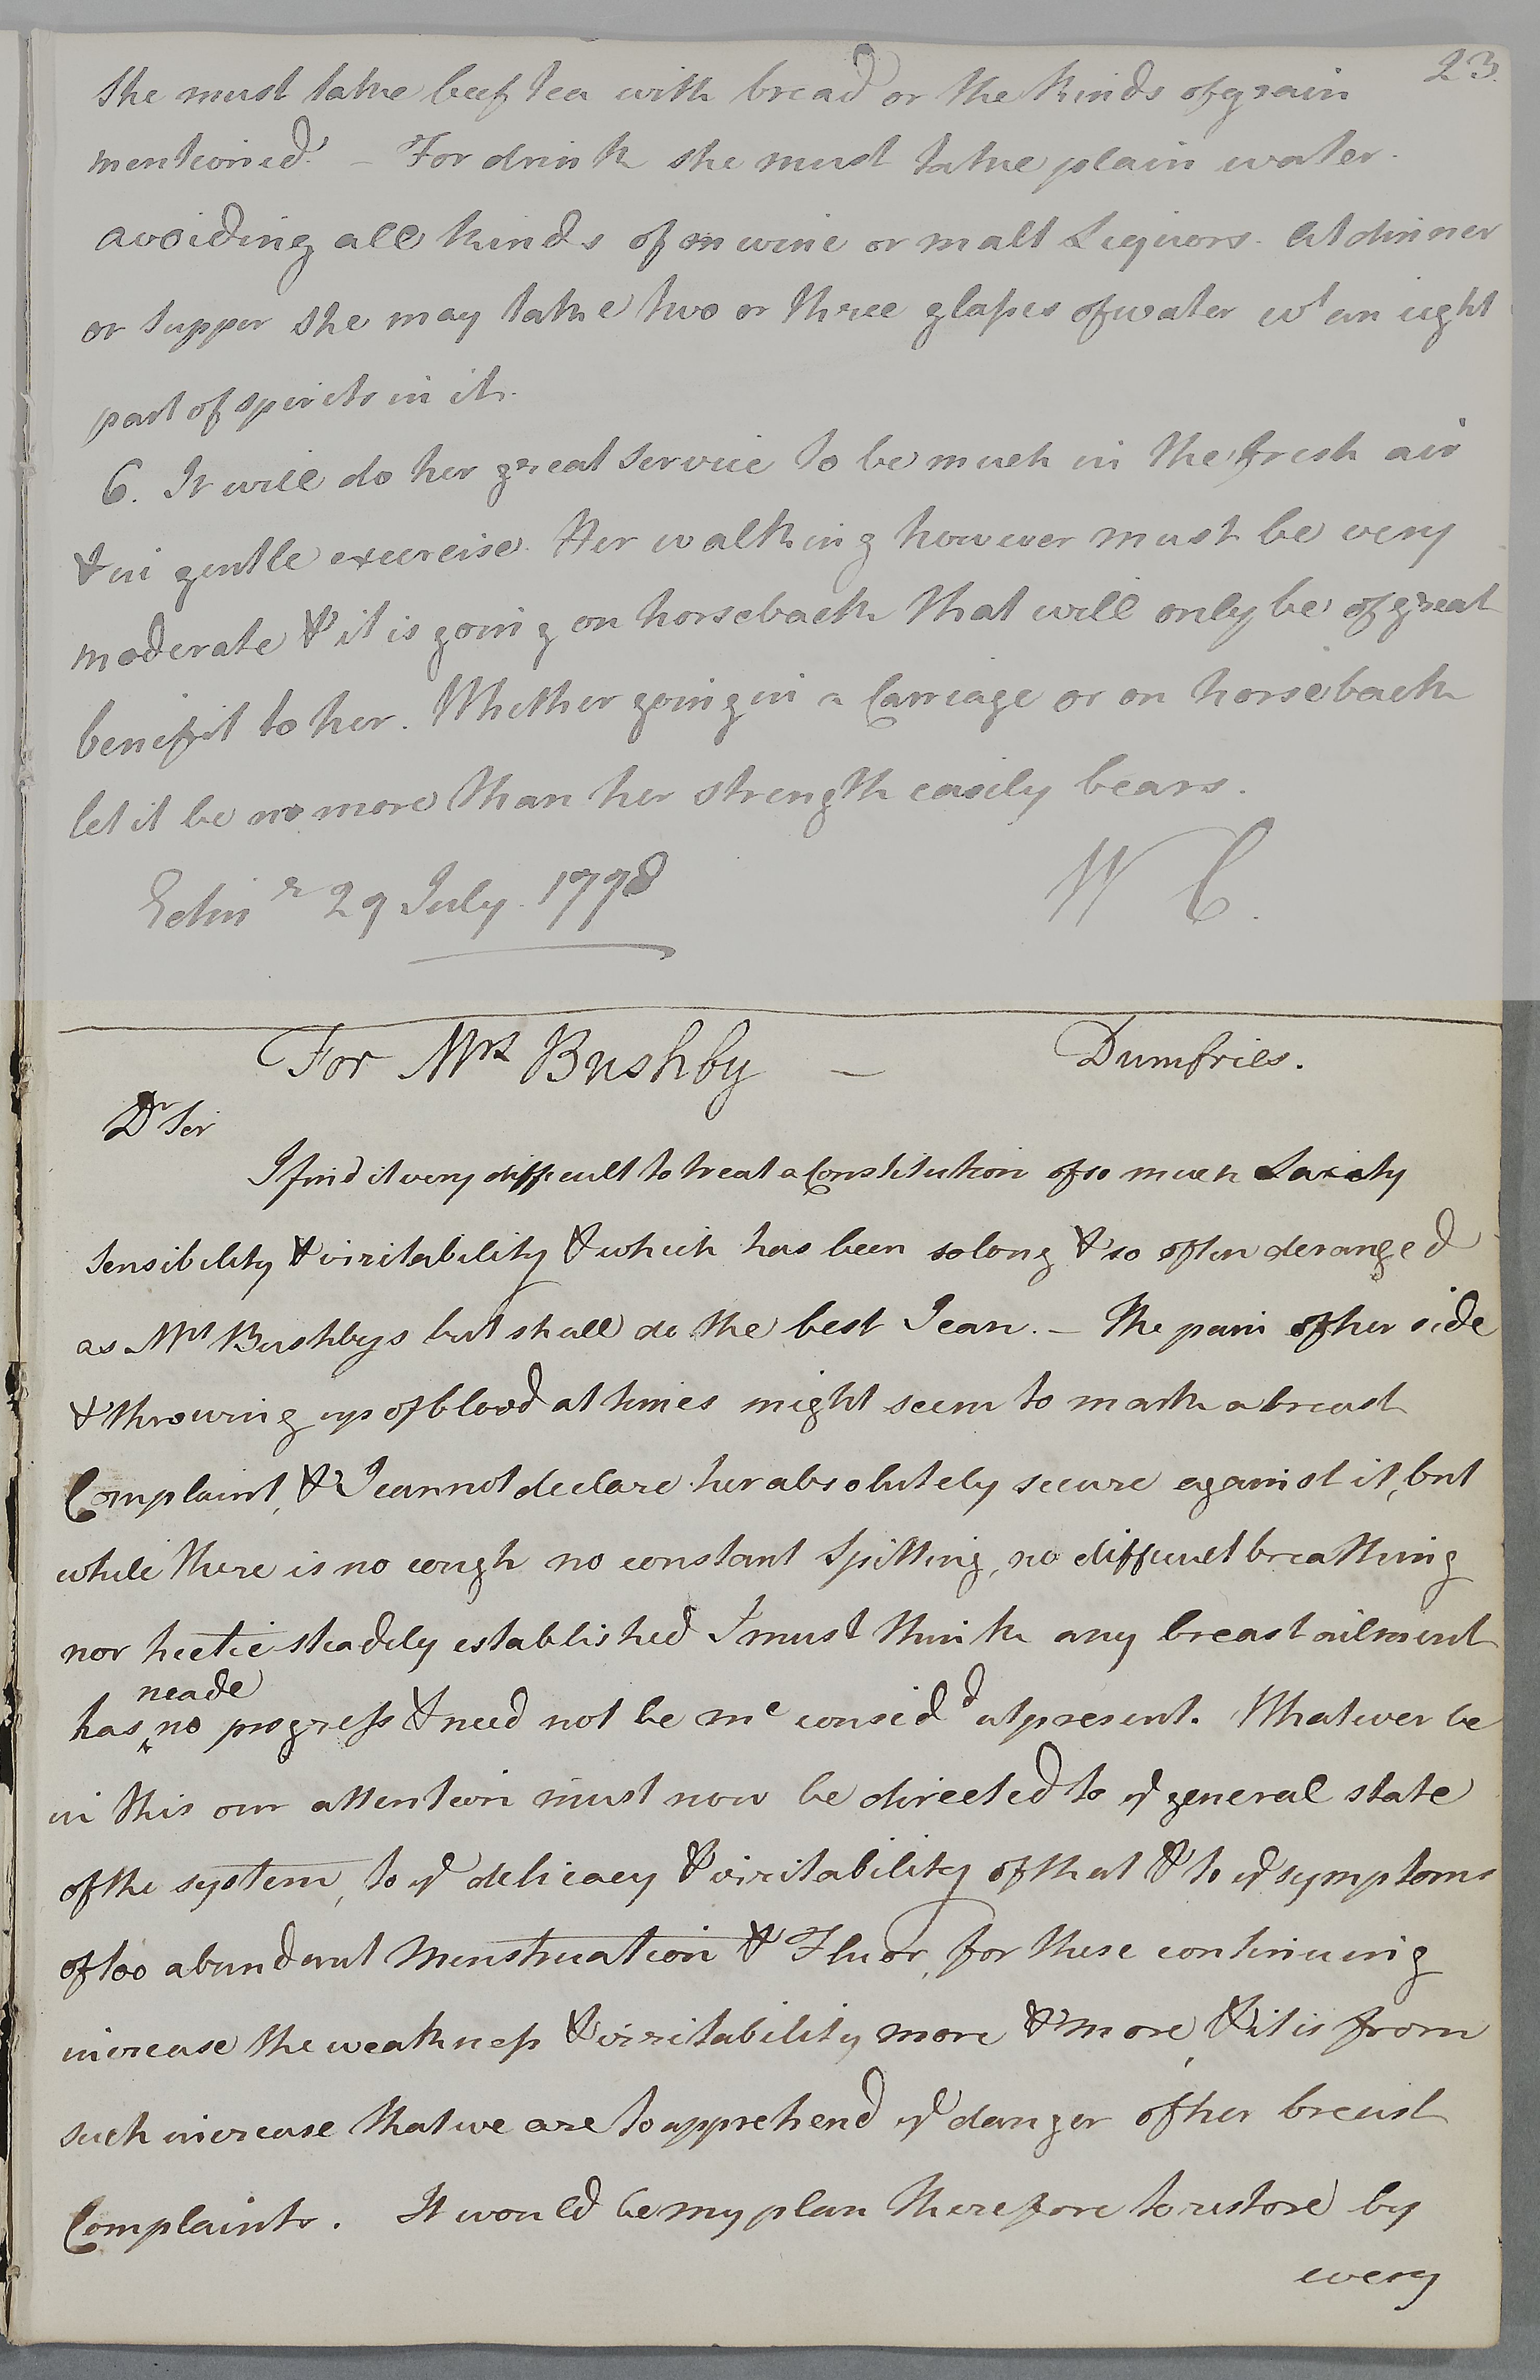 23.
She must take beef tea with bread or the kinds of grain
mentioned. – For drink she must take plain water.
avoiding all kinds of m wine or malt Liquors. At dinner
or supper she may take two or three glasses of water wt an eight
part of spirits in it.
6. It will do her great service to be much in the fresh air
& in gentle exercise. Her walking however must be very
moderate & it is going on horseback that will only be of great
benefit to her. Whether going in a Carriage or on horseback
let it be no more than her strength easily bears.
Edinr 29 July. 1778 W C.
For Mrs Bushby – Dumfries.
Dr Sir
I find it very difficult to treat a Constitution of so much Laxity
sensibility & irritability & which has been so long & so often deranged
as Mrs Bushbys but shall do the best I can. – The pain of her side
& throwing up of blood at times might seem to mark a breast
Complaint, & I cannot declare her absolutely secure against it, but
while there is no cough no constant spitting, no difficult breathing
nor hectic steadily established I must think any breast ailment
made
has ‸ no progress & need not be mc considd at present. Whatever be
in this our attention must now be directed to ye general state
of the system, to ye delicacy & irritability of that & to ye symptoms
of too abundant Menstruation & Fluor, for these continuing
increase the weakness & irritability more & more, & it is from
such increase that we are to apprehend ye danger of her breast
Complaints. It would be my plan therefore to restore by
every